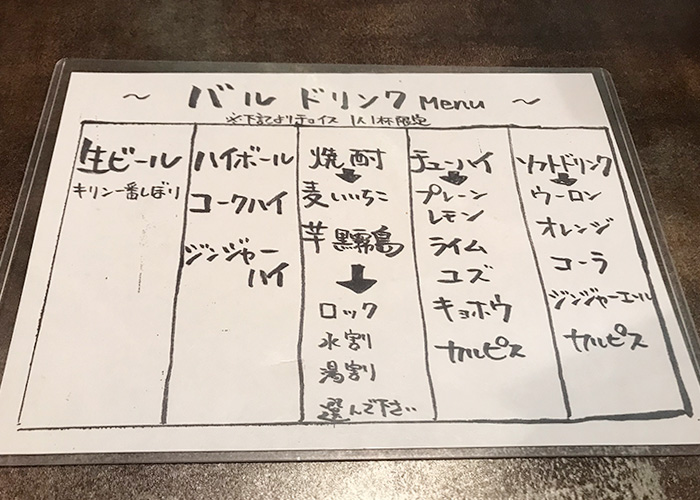 ～ バル ドリンク Menu ～
※下記よりチョイス 1人1杯限定
生ビール
キリン一番しぼり
ハイボール
コークハイ
ジンジャー
ハイ
焼酎
麦いいちこ
芋黒霧島
ロック
水割
湯割
選んで下さい
チューハイ
プレーン
レモン
ライム
ユズ
キョホウ
カルピス
ソフトドリンク
ウーロン
オレンジ
コーラ
ジンジャーエール
カルピス